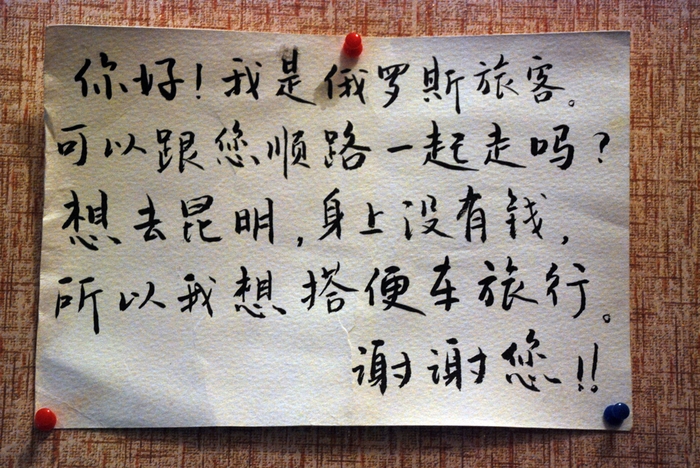 你好!我是俄罗斯旅客。
可以跟您顺路一起走吗?
想去昆明,身上没有钱,
所以我想搭便车旅行。
谢谢您!!